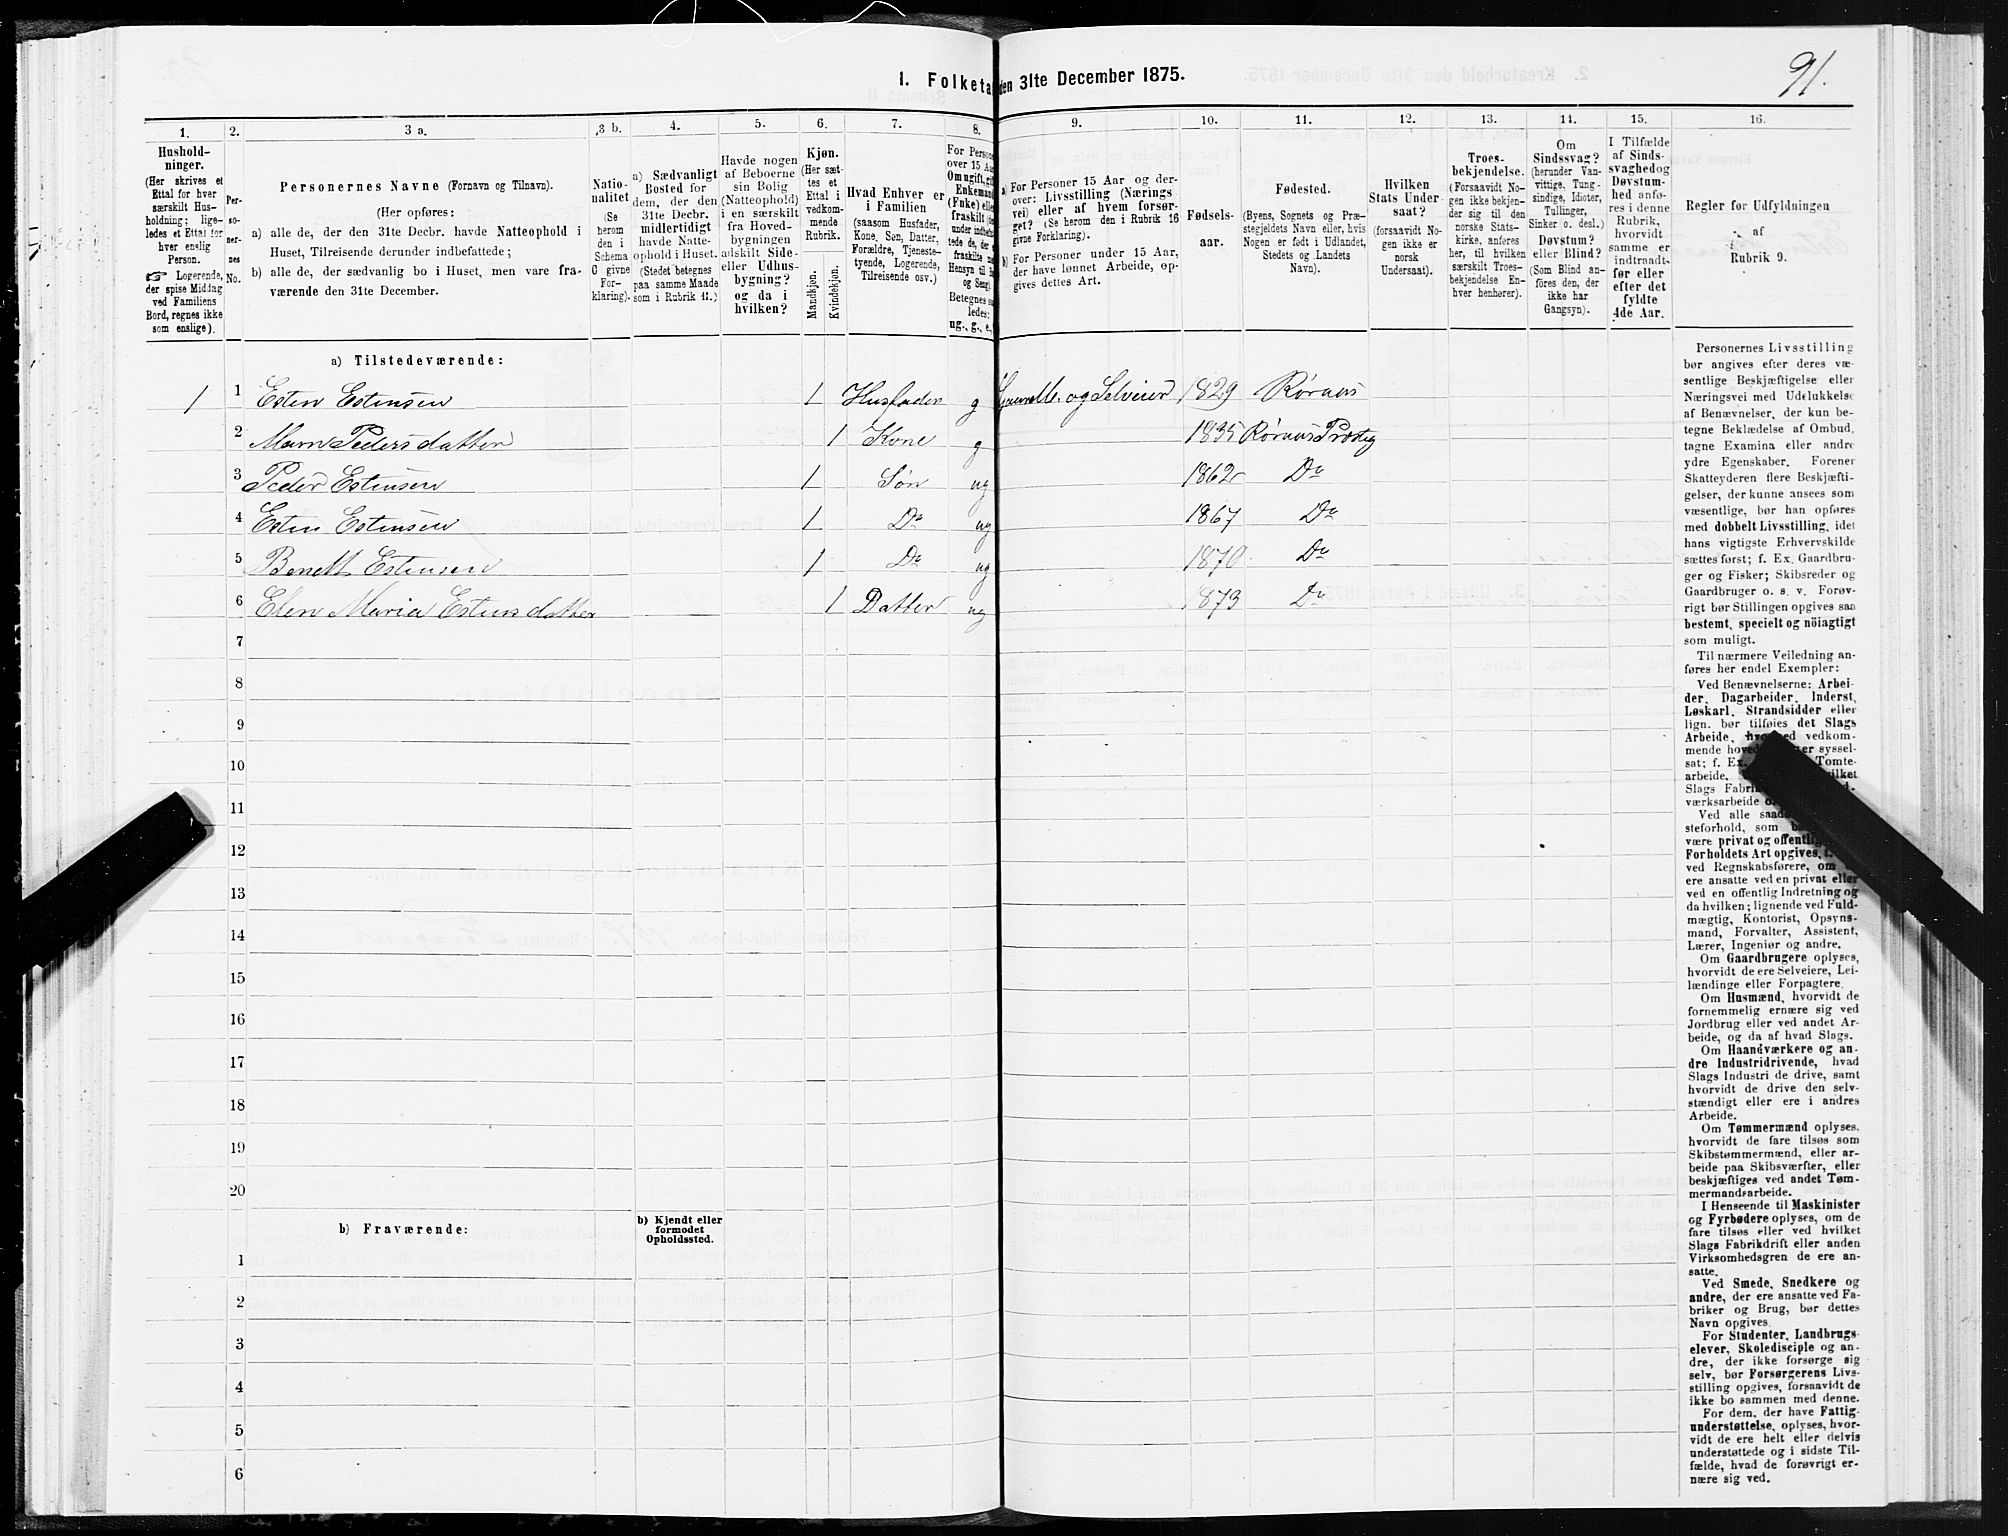 91.
1. Folketa den 31te December 1875.
1. 2. 3 a. 3 b. 4. 5. 6. 7. 8. 9. 10. 11. 12. 13. 14. 15. 16.
Hushold-
ninger.
(Her skrives et
Ettal for hver
særskilt Hus-
holdning; lige-
ledes et Ettal for
hver enslig
Person.
☞ Logerende,
der spise Middag
ved Familiens
Bord, regnes ikke
som enslige).
Per-
so-
ner-
nes
No.
Personernes Navne (Fornavn og Tilnavn).
(Her opføres:
a) alle de, der den 31te Decbr. havde Natteophold i
Huset, Tilreisende derunder indbefattede;
b) alle de, der sædvanlig bo i Huset, men vare fra-
værende den 31te December.
Natio-
nalitet
(Se
herom
den i
Schema
C givne
For-
klaring).
a) Sædvanligt
Bosted for
dem, der den
31te Decbr.
midlertidigt
havde Natte-
ophold i Huset.
(Stedet betegnes
paa samme Maade
som i Rubrik 11.)
Havde nogen
af Beboerne
sin Bolig
(Natteophold)
i en særskilt
fra Hoved-
bygningen
adskilt Side-
eller Udhus-
bygning?
og da i
hvilken?
Kjøn.
(Her sæt-
tes et
Ettal i
vedkom-
mende
Rubrik.
Mandkjøn.
Kvindekjøn.
Hvad Enhver er
i Familien
(saasom Husfader,
Kone, Søn, Datter,
Forældre, Tjeneste-
tyende, Logerende,
Tilreisende osv.)
For Person
over 15 Aa
Om ugift, gif
Enkeman
(Enke) elle
fraskilt
under indbefat-
tede de, de
fraskilte m
Hensyn til
og Seng).
Betegnes s
ledes:
ug., g., e.,
a) For Personer 15 Aar og der-
over: Livsstilling (Nærings-
vei) eller af hvem forsør-
get? (Se herom den i Rubrik 16
givne Forklaring).
b) For Personer under 15 Aar,
der have lønnet Arbeide, op-
gives dettes Art.
Fødsels-
aar.
Fødested.
(Byens, Sognets og Præ-
stegjeldets Navn eller, hvis
Nogen er født i Udlandet,
Stedets og Landets
Navn).
Hvilken
Stats Under-
saat?
(forsaavidt No-
gen ikke er
norsk
Undersaat).
Troes-
bekjendelse.
(Forsaavidt No-
gen ikke bekjen-
der sig til den
norske Stats-
kirke, anføres
her, til hvilken
særskilt Troes-
bekjendelse En-
hver henhører).
Om
Sindssvag?
(herunder Van-
vittige, Tung-
sindige, Idioter,
Tullinger,
Sinker o. desl.)
Døvstum?
eller Blind?
(Som Blind an-
føres den, der
ikke har
Gangsyn).
I Tilfælde
af Sinds-
svaghed og
Døvstum-
hed anfø-
res i denne
Rubrik,
hvorvidt
samme er
indtraadt
før eller
efter det
fyldte
4de Aar.
Regler for Udfyldningen
af
Rubrik 9.
a) Tilstedeværende:
1 1 Esten Estensen 1 Husfader g Gaardb. og Selveier 1829 Røraas
2 Marn Pedersdatter 1 Kone g 1835 Røraas Præstg
3 Peder Estensen 1 Søn ug 1862 Do
4 Esten Estensen 1 Do ug 1867 Do
5 Bendt Estensen 1 Do ug 1870 Do
6 Elen Maria Estensdatter 1 Datter ug 1873 Do
7
8
9
10
11
12
13
14
15
16
17
18
19
20
b) Fraværende:
b) Kjendt eller
formodet
Opholdssted.
1
2
3
4
5
6
Personernes Livsstilling
bør angives efter deres væ-
sentlige Beskjæftigelse eller
Næringsvei med Udelukkelse
af Benævnelser, der kun be-
tegne Beklædelse af Ombud,
tagne Examina eller andre
ydre Egenskaber. Forener
Skatteyderen flere Beskjæfti-
gelser, der kunne ansees som
væsentlige, bør han opføres
med dobbelt Livsstilling, idet
hans vigtigste Erhvervskilde
sættes først; f. Ex. Gaardbru-
ger og Fisker; Skibsreder og
Gaardbruger o. s. v. Forøv-
rigt bør Stillingen opgives saa
bestemt, specielt og nöiagtigt
som muligt.
Til nærmere Veiledning an-
føres her endel Exempler:
Ved Benævnelserne: Arbei-
der, Dagarbeider, Inderst,
Løskarl, Strandsidder eller
lign. bør tilføies det Slags
Arbeide, hvormed vedkom-
mende hovedsageligen er syssel-
sat; f. Ex. Tomte-
arbeide, hvilket
Slags Fabrik
værksarbeide o.
Ved alle saadanne
steforhold, som
være privat og offentlig,
Forholdets Art opgives, t.
ved Regnskabsførere, om
ere ansatte ved en privat eller
ved en offentlig Indretning og
da hvilken; lignende ved Fuld-
mægtig, Kontorist, Opsyns-
mand, Forvalter, Assistent,
Lærer, Ingeniør og andre.
Om Gaardbrugere oplyses,
hvorvidt de ere Selveiere, Lei-
lændinge eller Forpagtere.
Om Husmænd, hvorvidt de
fornemmelig ernære sig ved
Jordbrug eller ved andet Ar-
beide, og da af hvad Slags.
Om Haandværkere og an-
dre Industridrivende, hvad
Slags Industri de drive, samt
hvorvidt de drive den selv-
stændigt eller ere i andres
Arbeide.
Om Tømmermænd oplyses,
hvorvidt de fare tilsøs som
Skibstømmermænd, eller ar-
beide paa Skibsværfter, eller
beskjæftiges ved andet Tøm-
mermandsarbeide.
I Henseende til Maskinister
og Fyrbødere oplyses, om de
fare tilsøs eller ved hvilket
Slags Fabrikdrift eller anden
Virksomhedsgren de ere an-
satte.
Ved Smede, Snedkere og
andre, der ere ansatte ved Fa-
briker og Brug, bør dettes
Navn opgives.
For Studenter, Landbrugs-
elever, Skoledisciple og an-
dre, der ikke forsørge sig
selv, bør Forsørgerens Livs-
stilling opgives, forsaavidt de
ikke bo sammen med denne.
For dem, der have Fattig-
understøttelse, oplyses, hvor-
vidt de ere helt eller delvis
understøttede og i sidste Til-
fælde, hvad de forøvrigt er-
nære sig ved.